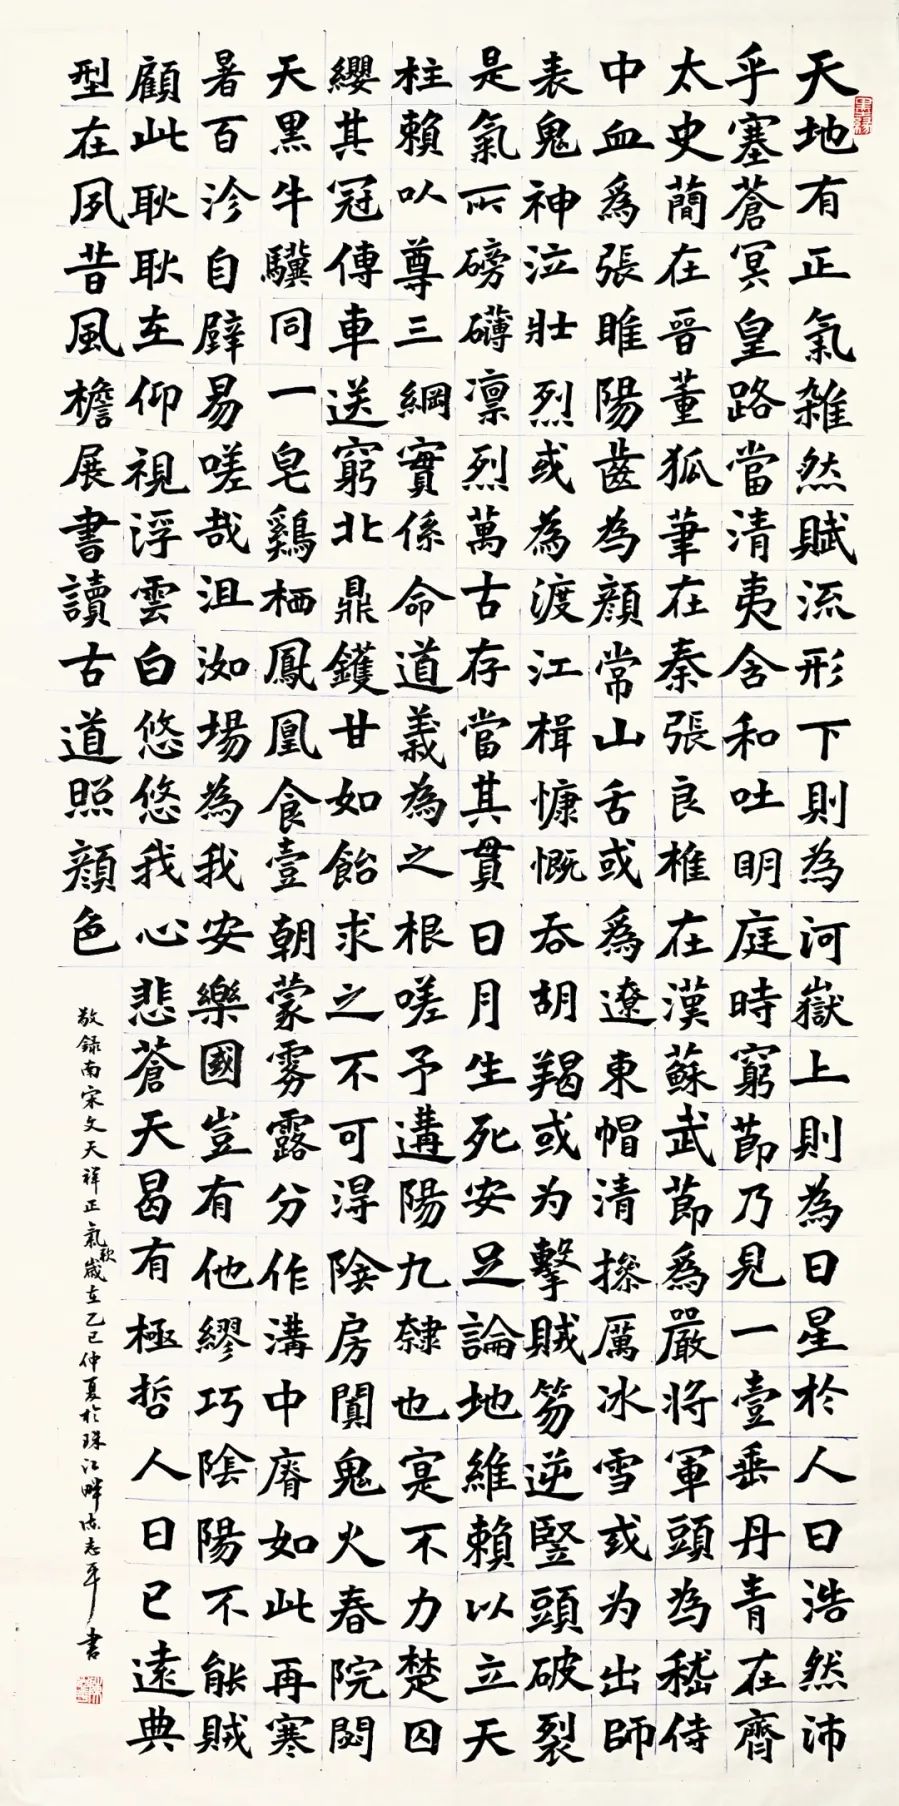 天地有正氣雜然賦流形下則為河嶽上則為日星於人曰浩然沛
乎塞蒼冥皇路當清夷含和吐明庭時窮節乃見一壹垂丹青在齊
太史簡在晉董狐筆在秦張良椎在漢蘇武節為嚴將軍頭為嵇侍
中血為張睢陽齒為顏常山舌或為遼東帽清操厲冰雪或为出師
表鬼神泣壯烈或為渡江楫慷慨吞胡羯或为擊賊笏逆豎頭破裂
是氣所磅礴凜烈萬古存當其貫日月生死安足論地維賴以立天
柱賴以尊三綱實係命道義為之根嗟予遘陽九隸也寔不力楚囚
纓其冠傳車送窮北鼎鑊甘如飴求之不可得陰房闃鬼火春院閟
天黑牛驥同一皂鷄栖鳳凰食壹朝蒙霧露分作溝中瘠如此再寒
暑百沴自辟易嗟哉沮洳場為我安樂國豈有他繆巧陰陽不能賊
顧此耿耿在仰視浮雲白悠悠我心悲蒼天曷有極哲人日已遠典
型在夙昔風檐展書讀古道照顏色
敬錄南宋文天祥正氣歌歲在乙巳仲夏於珠江畔陈志平書